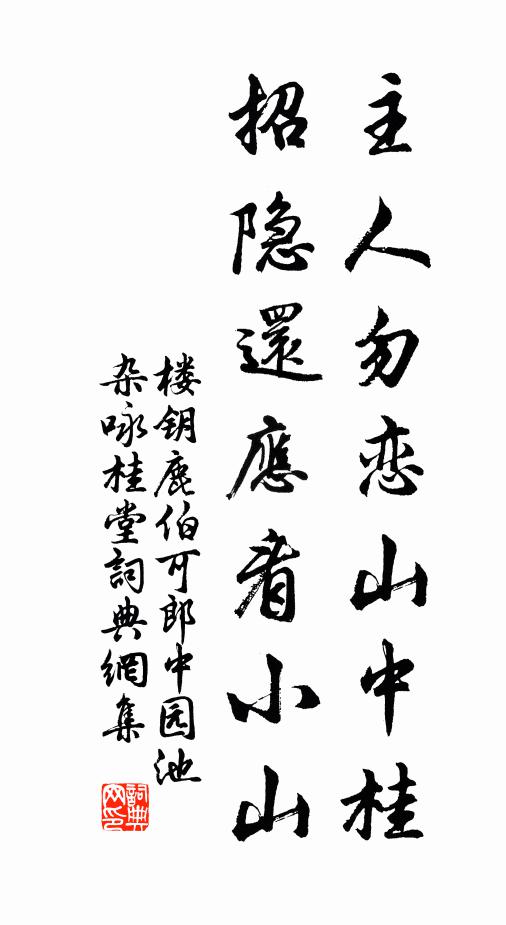 主人勿恋山中桂
招隐還應看小山
楼钥鹿伯可郎中园池
杂咏桂堂詞典網集
詞典网印